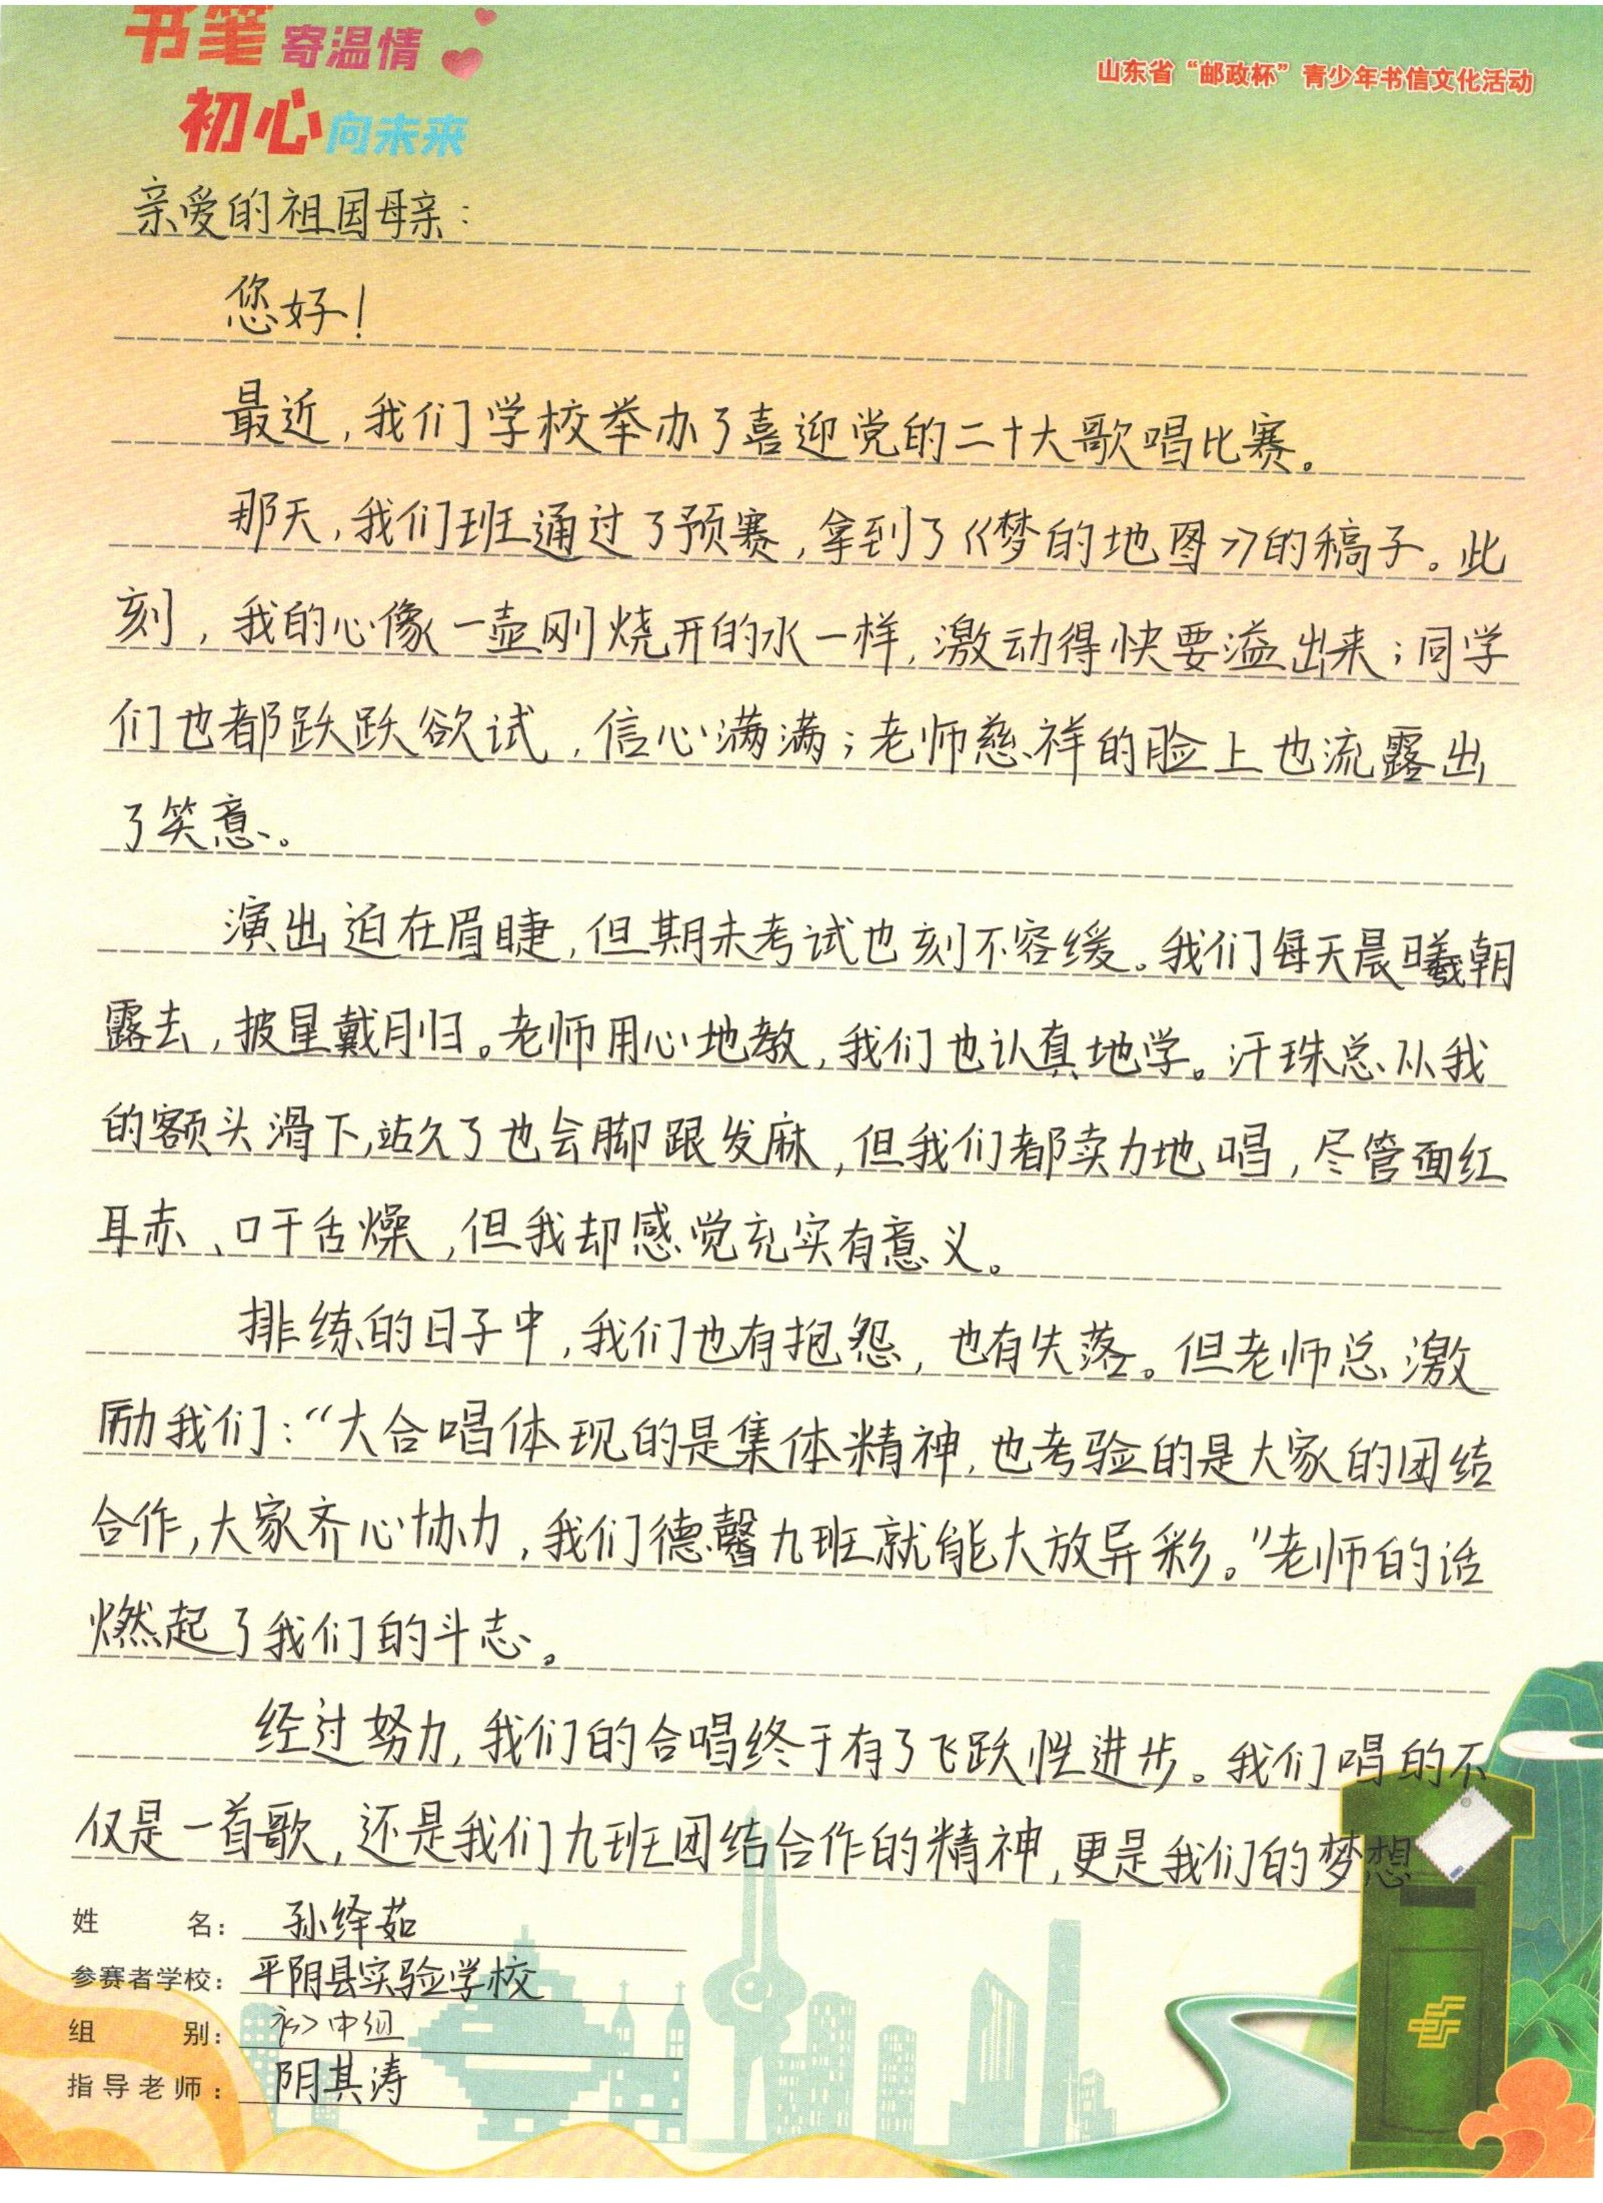 书笔寄温情
山东省“邮政杯”青少年书信文化活动
初心向未来
亲爱的祖国母亲：
您好！
最近，我们学校举办了喜迎党的二十大歌唱比赛。
那天，我们班通过了预赛，拿到了《梦的地图》的稿子。此
刻，我的心像一壶刚烧开的水一样，激动得快要溢出来；同学
们也都跃跃欲试，信心满满；老师慈祥的脸上也流露出
了笑意。
演出迫在眉睫，但期末考试也刻不容缓。我们每天晨曦朝
露去，披星戴月归。老师用心地教，我们也认真地学。汗珠总从我
的额头滑下，站久了也会脚跟发麻，但我们都卖力地唱，尽管面红
耳赤、口干舌燥，但我却感觉充实有意义。
排练的日子中，我们也有抱怨，也有失落。但老师总激
励我们：“大合唱体现的是集体精神，也考验的是大家的团结
合作，大家齐心协力，我们德馨九班就能大放异彩。”老师的话
燃起了我们的斗志。
经过努力，我们的合唱终于有了飞跃性进步。我们唱的不
仅是一首歌，还是我们九班团结合作的精神，更是我们的梦想
姓名：孙绎茹
参赛者学校：平阴县实验学校
组别：初中组
指导老师：阴其涛